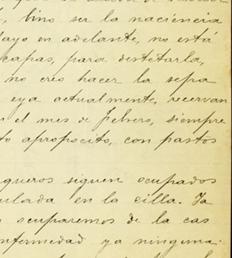 , bino ser la naciencia
ayo en adelante, no está
capas, para distetarla,
no creo hacer la sepa
eya actualmente, recervan
el mes de febrero, siempre
to apropocito, con pastos
queros siguen ocupados
ulada en la cilla. Ja
ocuparemos de la cas
nfermedad ya ninguna: